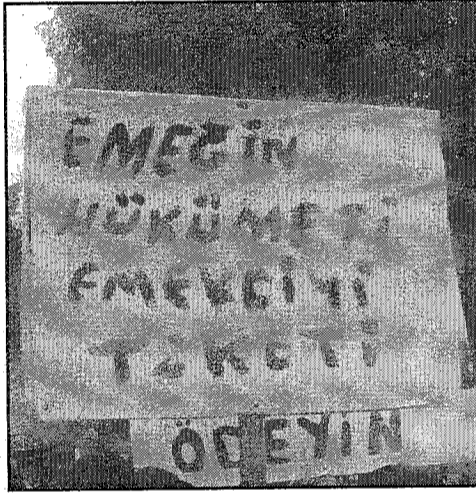 EMEĞİN
HÜKÜMETİ
EMEKÇİYİ
TÜKETİ
ÖDEYİN